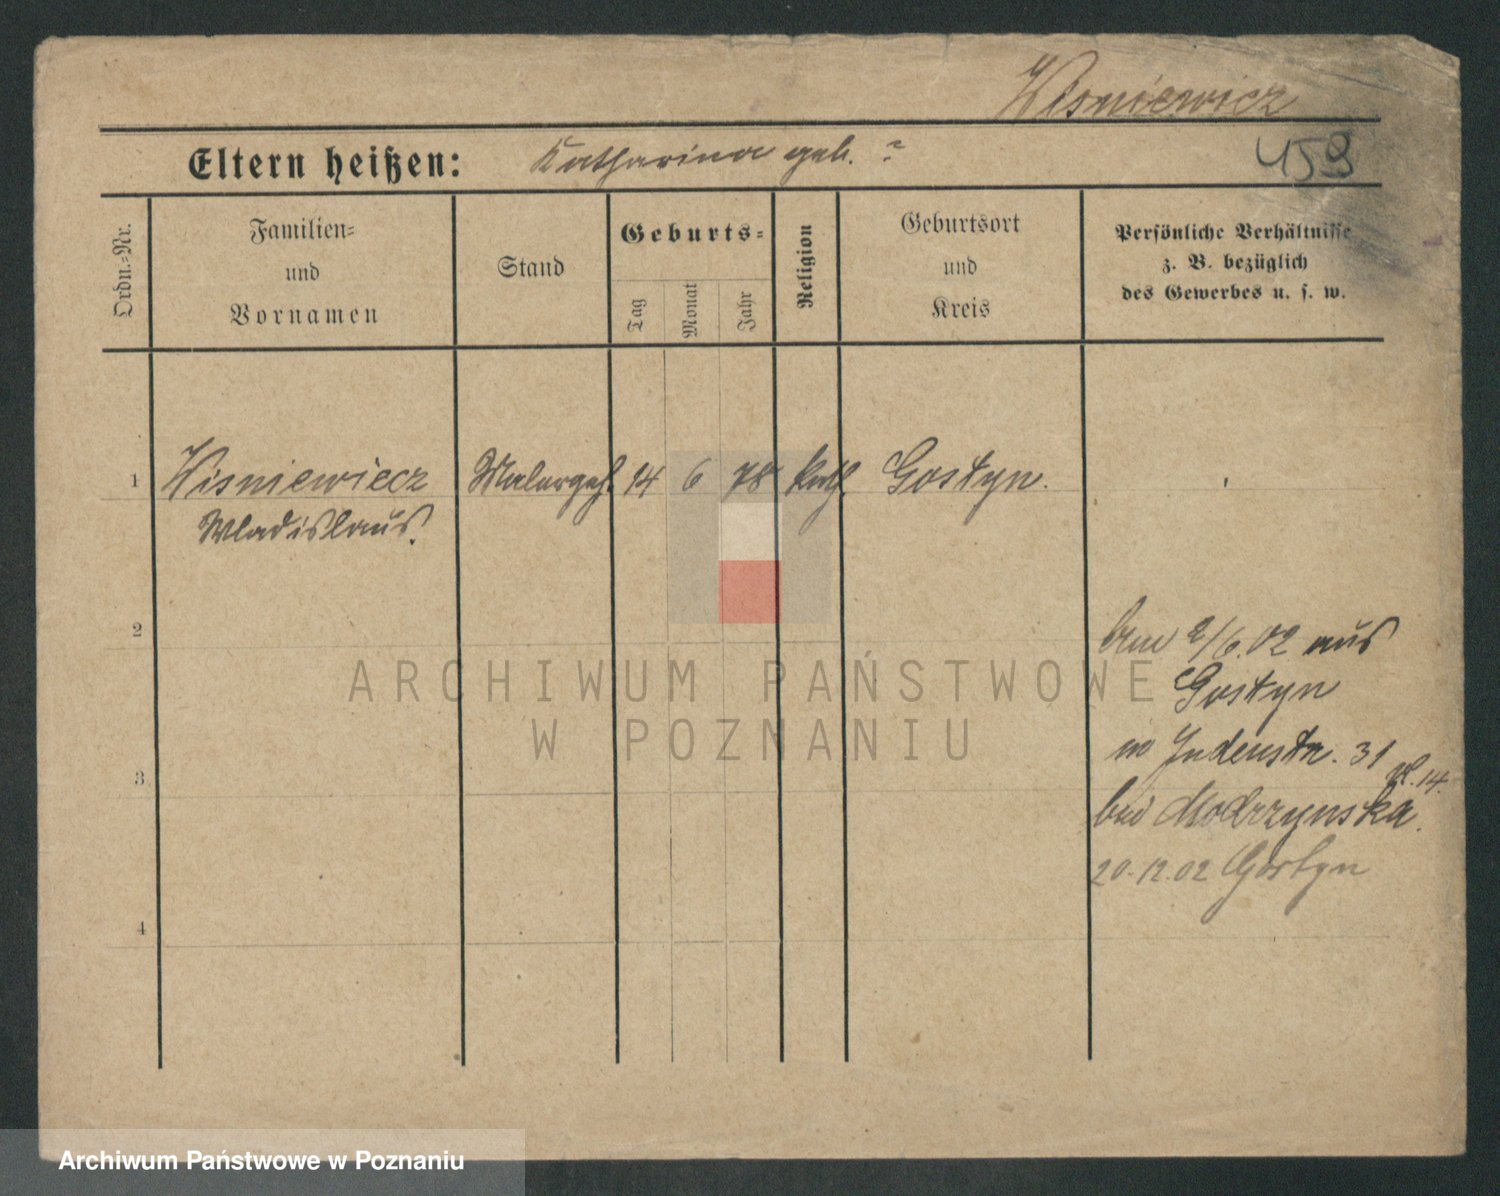 Wisniewicz
Eltern heißen: Katharina geb. ?
459
Ordn.-Nr.
Familien-
und
Vornamen
Stand
Geburts-
Tag
Monat
Jahr
Religion
Geburtsort
und
Kreis
Persönliche Verhältnisse
z. B. bezüglich
des Gewerbes u. s. w.
1 Wisniewiecz Malergeh. 14 6 78 kath. Gostyn.
Wladislaus.
2
3
4
2/6.02 aus
Gostyn
Judenstr. 31
14.
bei Modrzynska.
20.12.02 Gostyn
ARCHIWUM PAŃSTWOWE
W POZNANIU
Archiwum Państwowe w Poznaniu